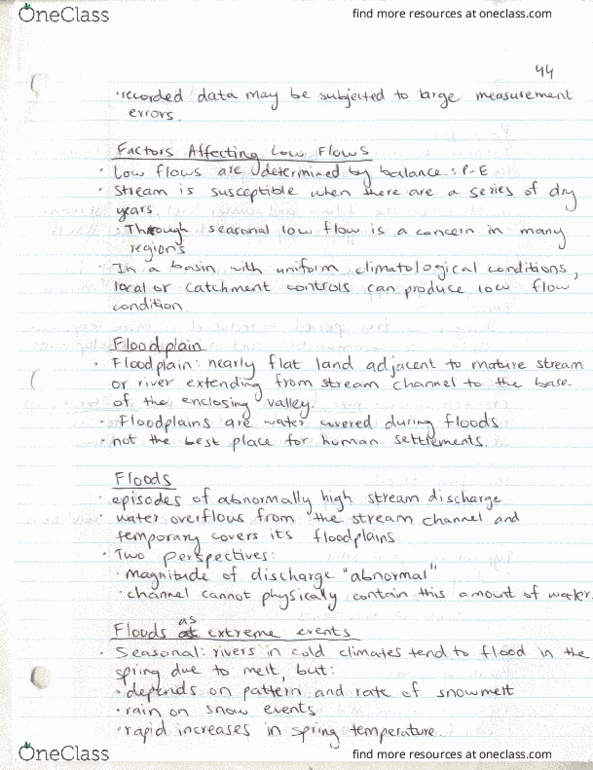 OneClass
find more resources at oneclass.com
44
·recorded data may be subjected to large measurement
errors.
Factors Affecting Low Flows
· Low flows are determined by balance: P-E
· Stream is susceptible when there are a series of dry
years.
· Through seasonal low flow is a concern in many
regions
· In a basin with uniform climatological conditions,
local or catchment controls can produce low flow
condition
Floodplain
· Floodplain: nearly flat land adjacent to mature stream
or river extending from stream channel to the base
of the enclosing valley.
· Floodplains are water covered during floods
· not the best place for human settlements.
Floods
· episodes of abnormally high stream discharge
· water overflows from the stream channel and
temporary covers its floodplains
· Two perspectives:
· magnitude of discharge "abnormal"
· channel cannot physically contain this amount of water.
Floods as extreme events
· Seasonal: rivers in cold climates tend to flood in the
spring due to melt, but:
· depends on pattern and rate of snowmelt
· rain on snow events
· rapid increases in spring temperature.
OneClass
find more resources at oneclass.com